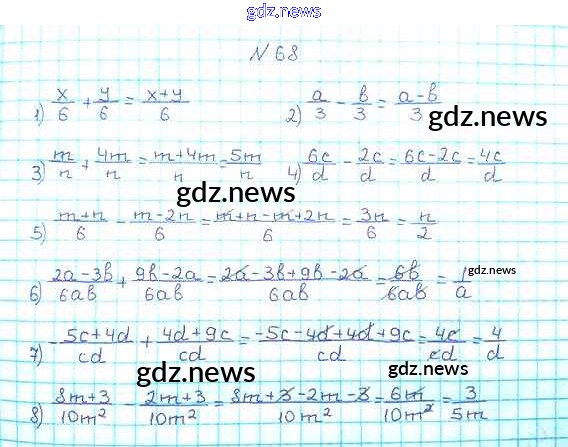 gdz.news
N 68
1) x/6 + y/6 = x+y/6 2) a/3 - b/3 = a-b/3
gdz.news
3) m/n + 4m/n = m+4m/n = 5m/n 4) 6c/d - 2c/d = 6c-2c/d = 4c/d
gdz.news
5) m+n/6 - m-2n/6 = m+n-m+2n/6 = 3n/6 = n/2
6) 2a-3b/6ab + 9b-2a/6ab = 2a-3b+9b-2a/6ab = 6b/6ab = 1/a
gdz.news
7) -5c+4d/cd + 4d+9c/cd = -5c-4d+4d+9c/cd = 4c/cd = 4/d
gdz.news gdz.news
8) 8m+3/10m² - 2m+3/10m² = 8m+3-2m-3/10m² = 6m/10m² = 3/5m